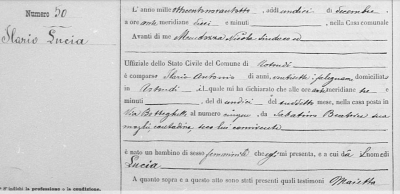 Numero 50
Ilario Lucia
L'anno mille ottocentottantotto, addì undici di dicembre
a ore meridiane dieci e minuti, nella Casa comunale
Avanti di me Sindaco ed
Uffiziale dello Stato Civile del Comune di
è comparso Ilario Antonio, di anni ventisette, falegname, domiciliato
in, il quale mi ha dichiarato che alle ore meridiane tre e
minuti, del dì undici del suddetto mese, nella casa posta in
Via Botteghelle al numero cinque, da Sabatino Beatrice sua
moglie, contadina, seco lui convivente
è nato un bambino di sesso femminile che egli mi presenta, e a cui dà i nomi di
Lucia
A quanto sopra e a questo atto sono stati presenti quali testimoni Maietta
s'indichi la professione o la condizione.